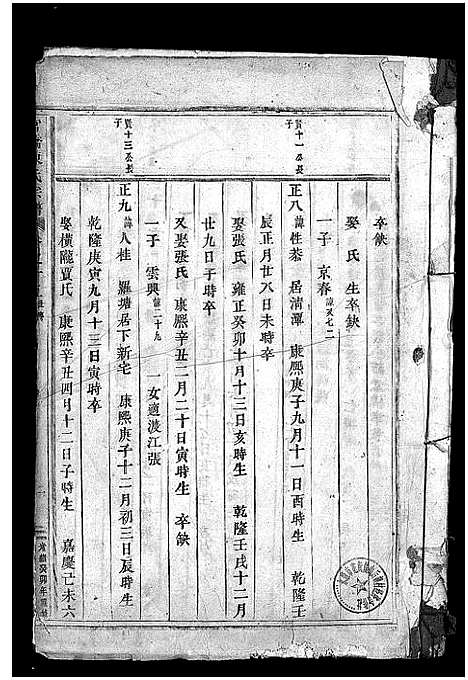 卒缺
娶 氏 生卒缺
一子 京春 諱又七二
賢十一公長子
正八 諱性恭 居清潭 康熙庚子九月十一日酉時生 乾隆壬
辰正月廿八日未時卒
娶張氏 雍正癸卯十月十三日亥時生 乾隆壬戌十二月
廿九日子時卒
又娶張氏 康熙辛丑二月二十日寅時生 卒缺
一子 雲興 諱二十九 一女適渡江張
賢十三公長子
正九 諱人桂 羅塘居下新宅 康熙庚子十二月初三日辰時生
乾隆庚寅九月十三日寅時卒
娶橫隴賈氏 康熙辛丑四月十二日子時生 嘉慶己未六
癸卯年重修